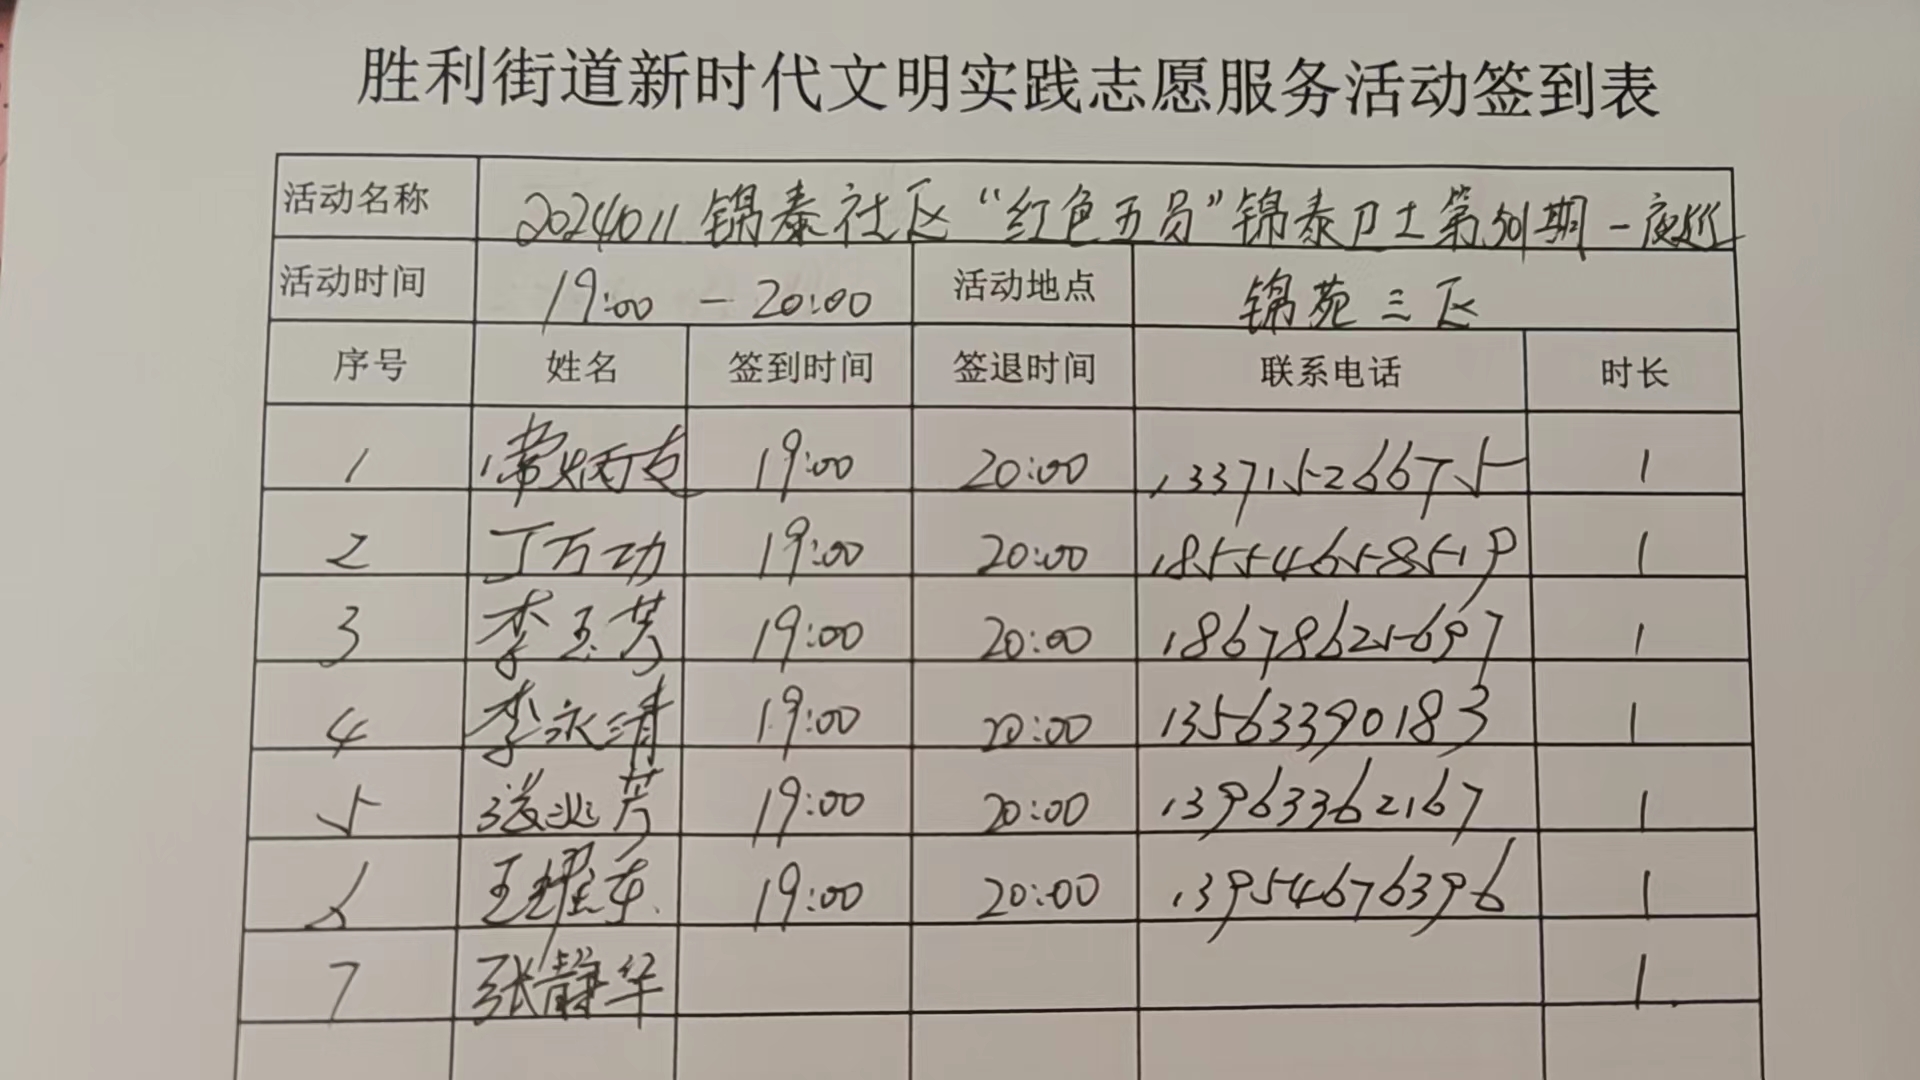 胜利街道新时代文明实践志愿服务活动签到表
活动名称 20240111 锦泰社区“红色五员”锦泰卫士第501期-夜巡
活动时间 19:00 - 20:00 活动地点 锦苑三区
序号 姓名 签到时间 签退时间 联系电话 时长
1 常炳友 19:00 20:00 13371526675 1
2 丁万功 19:00 20:00 18554658519 1
3 李玉芳 19:00 20:00 18678621697 1
4 李永清 19:00 20:00 13563390183 1
5 芳 19:00 20:00 13963362167 1
6 王耀东 19:00 20:00 13954676396 1
7 张静华 1